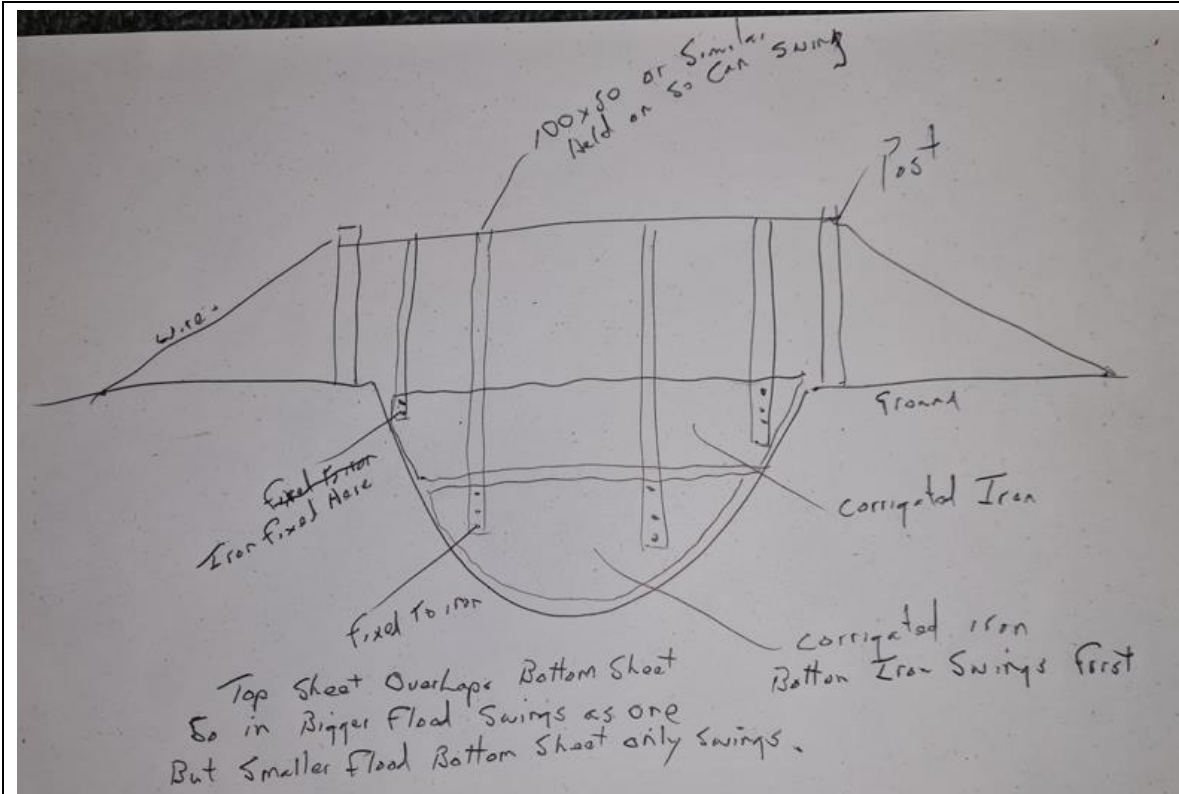 100x50 or Similar
Held on So Can Swing
Post
Wire
Ground
Fixed To Iron
Iron Fixed Here
Corrigated Iron
Fixed To iron
Corrigated iron
Bottom Iron Swings First
Top Sheet Overlaps Bottom Sheet
So in Bigger Flood Swings as one
But Smaller Flood Bottom Sheet only Swings.